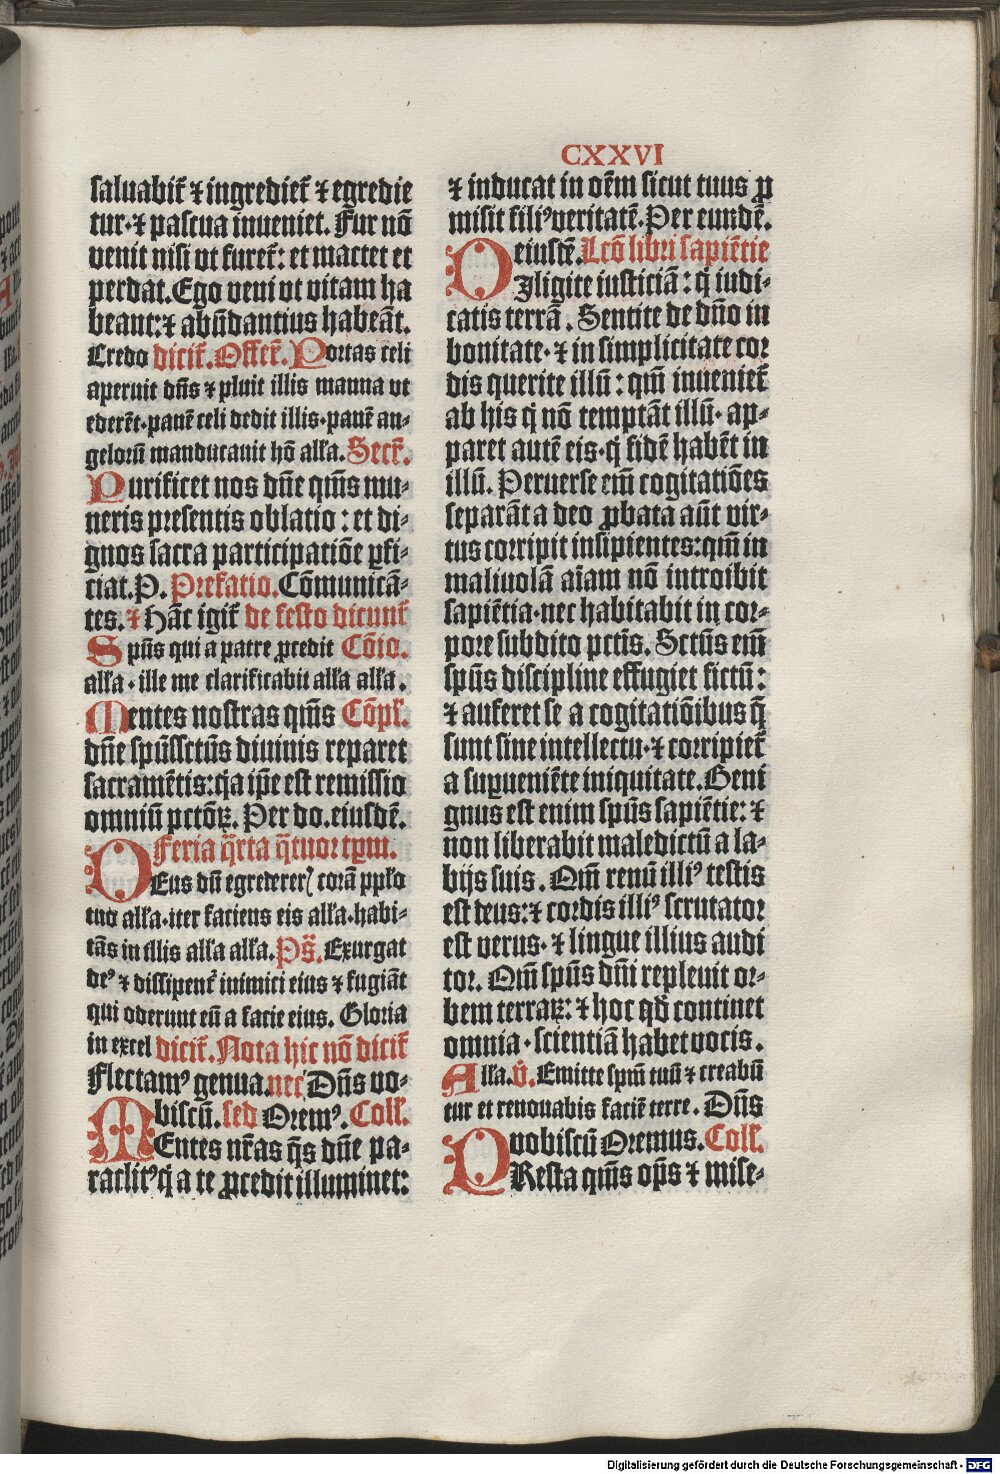 CXXVI
saluabit᷑ ⁊ ingrediet᷑ ⁊ egredie
tur·⁊ pascua inueniet. Fur nō
venit nisi vt furet᷑: et mactet et
perdat. Ego veni vt vitam ha
beant:⁊ abūdantius habeāt.
Credo dicit᷑. Offer᷑. Portas celi
aperuit dn̄s ⁊ pluit illis manna vt
ederēt·panē celi dedit illis·panē an⸗
gelorū manducauit hō all'a. Secr᷑.
Purificet nos dn̄e qm̄s mu⸗
neris presentis oblatio: et di⸗
gnos sacra participatiōe ꝑfi⸗
ciat. P. Prefatio. Cōmunicā⸗
tes. ⁊ Hāc igit᷑ de festo dicunt᷑
Spūs qui a patre ꝓcedit Cōio.
all'a·ille me clarificabit all'a all'a.
Mentes nostras qm̄s Cōpl'.
dn̄e spūssctūs diuinis reparet
sacramētis:q̇a ip̄e est remissio
omniū pctōꝝ. Per do. eiusdē.
Feria q̄rta q̄tuor tp̄m.
DEus dū egrederer᷑ corā ppl'o
tuo all'a·iter faciens eis all'a·habi⸗
tās in illis all'a all'a. Ps̄. Exurgat
deꝰ ⁊ dissipent᷑ inimici eius ⁊ fugiāt
qui oderunt eū a facie eius. Gloria
in excel dicit᷑. Nota hic nō dicit᷑
Flectamꝰ genua. nec Dn̄s vo⸗
biscū. sed Oremꝰ. Coll'.
MEntes nr̄as q̄s dn̄e pa⸗
raclitꝰ q̇ a te ꝓcedit illuminet:
⁊ inducat in oēm sicut tuus ꝓ
misit filiꝰ veritatē. Per eundē.
eiusdē. Lcō libri sapiētie
DIligite iusticiā: q̇ iudi⸗
catis terrā. Sentite de dn̄o in
bonitate·⁊ in simplicitate cor
dis querite illū: qm̄ inueniet᷑
ab his q̇ nō temptāt illū·ap⸗
paret autē eis·q̇ fidē habēt in
illū. Peruerse em̄ cogitatiōes
separāt a deo ꝓbata aūt vir⸗
tus corripit insipientes:qm̄ in
maliuolā aīam nō introibit
sapiētia·nec habitabit in cor⸗
pore subdito pctīs. Sctūs em̄
spūs discipline effugiet fictū:
⁊ auferet se a cogitatiōibus q̄
sunt sine intellectu·⁊ corripiet᷑
a suꝑueniēte iniquitate. Beni
gnus est enim spūs sapiētie: ⁊
non liberabit maledictū a la⸗
bijs suis. Qm̄ renū illiꝰ testis
est deus:⁊ cordis illiꝰ scrutator
est verus·⁊ lingue illius audi
tor. Qm̄ spūs dn̄i repleuit or⸗
bem terraꝝ: ⁊ hoc qd̄ continet
omnia·scientiā habet vocis.
All'a. V̄. Emitte spm̄ tuū ⁊ creabū
tur et renouabis faciē terre. Dn̄s
vobiscū Oremus. Coll'.
PResta qm̄s op̄s ⁊ mise⸗
Digitalisierung gefördert durch die Deutsche Forschungsgemeinschaft - DFG